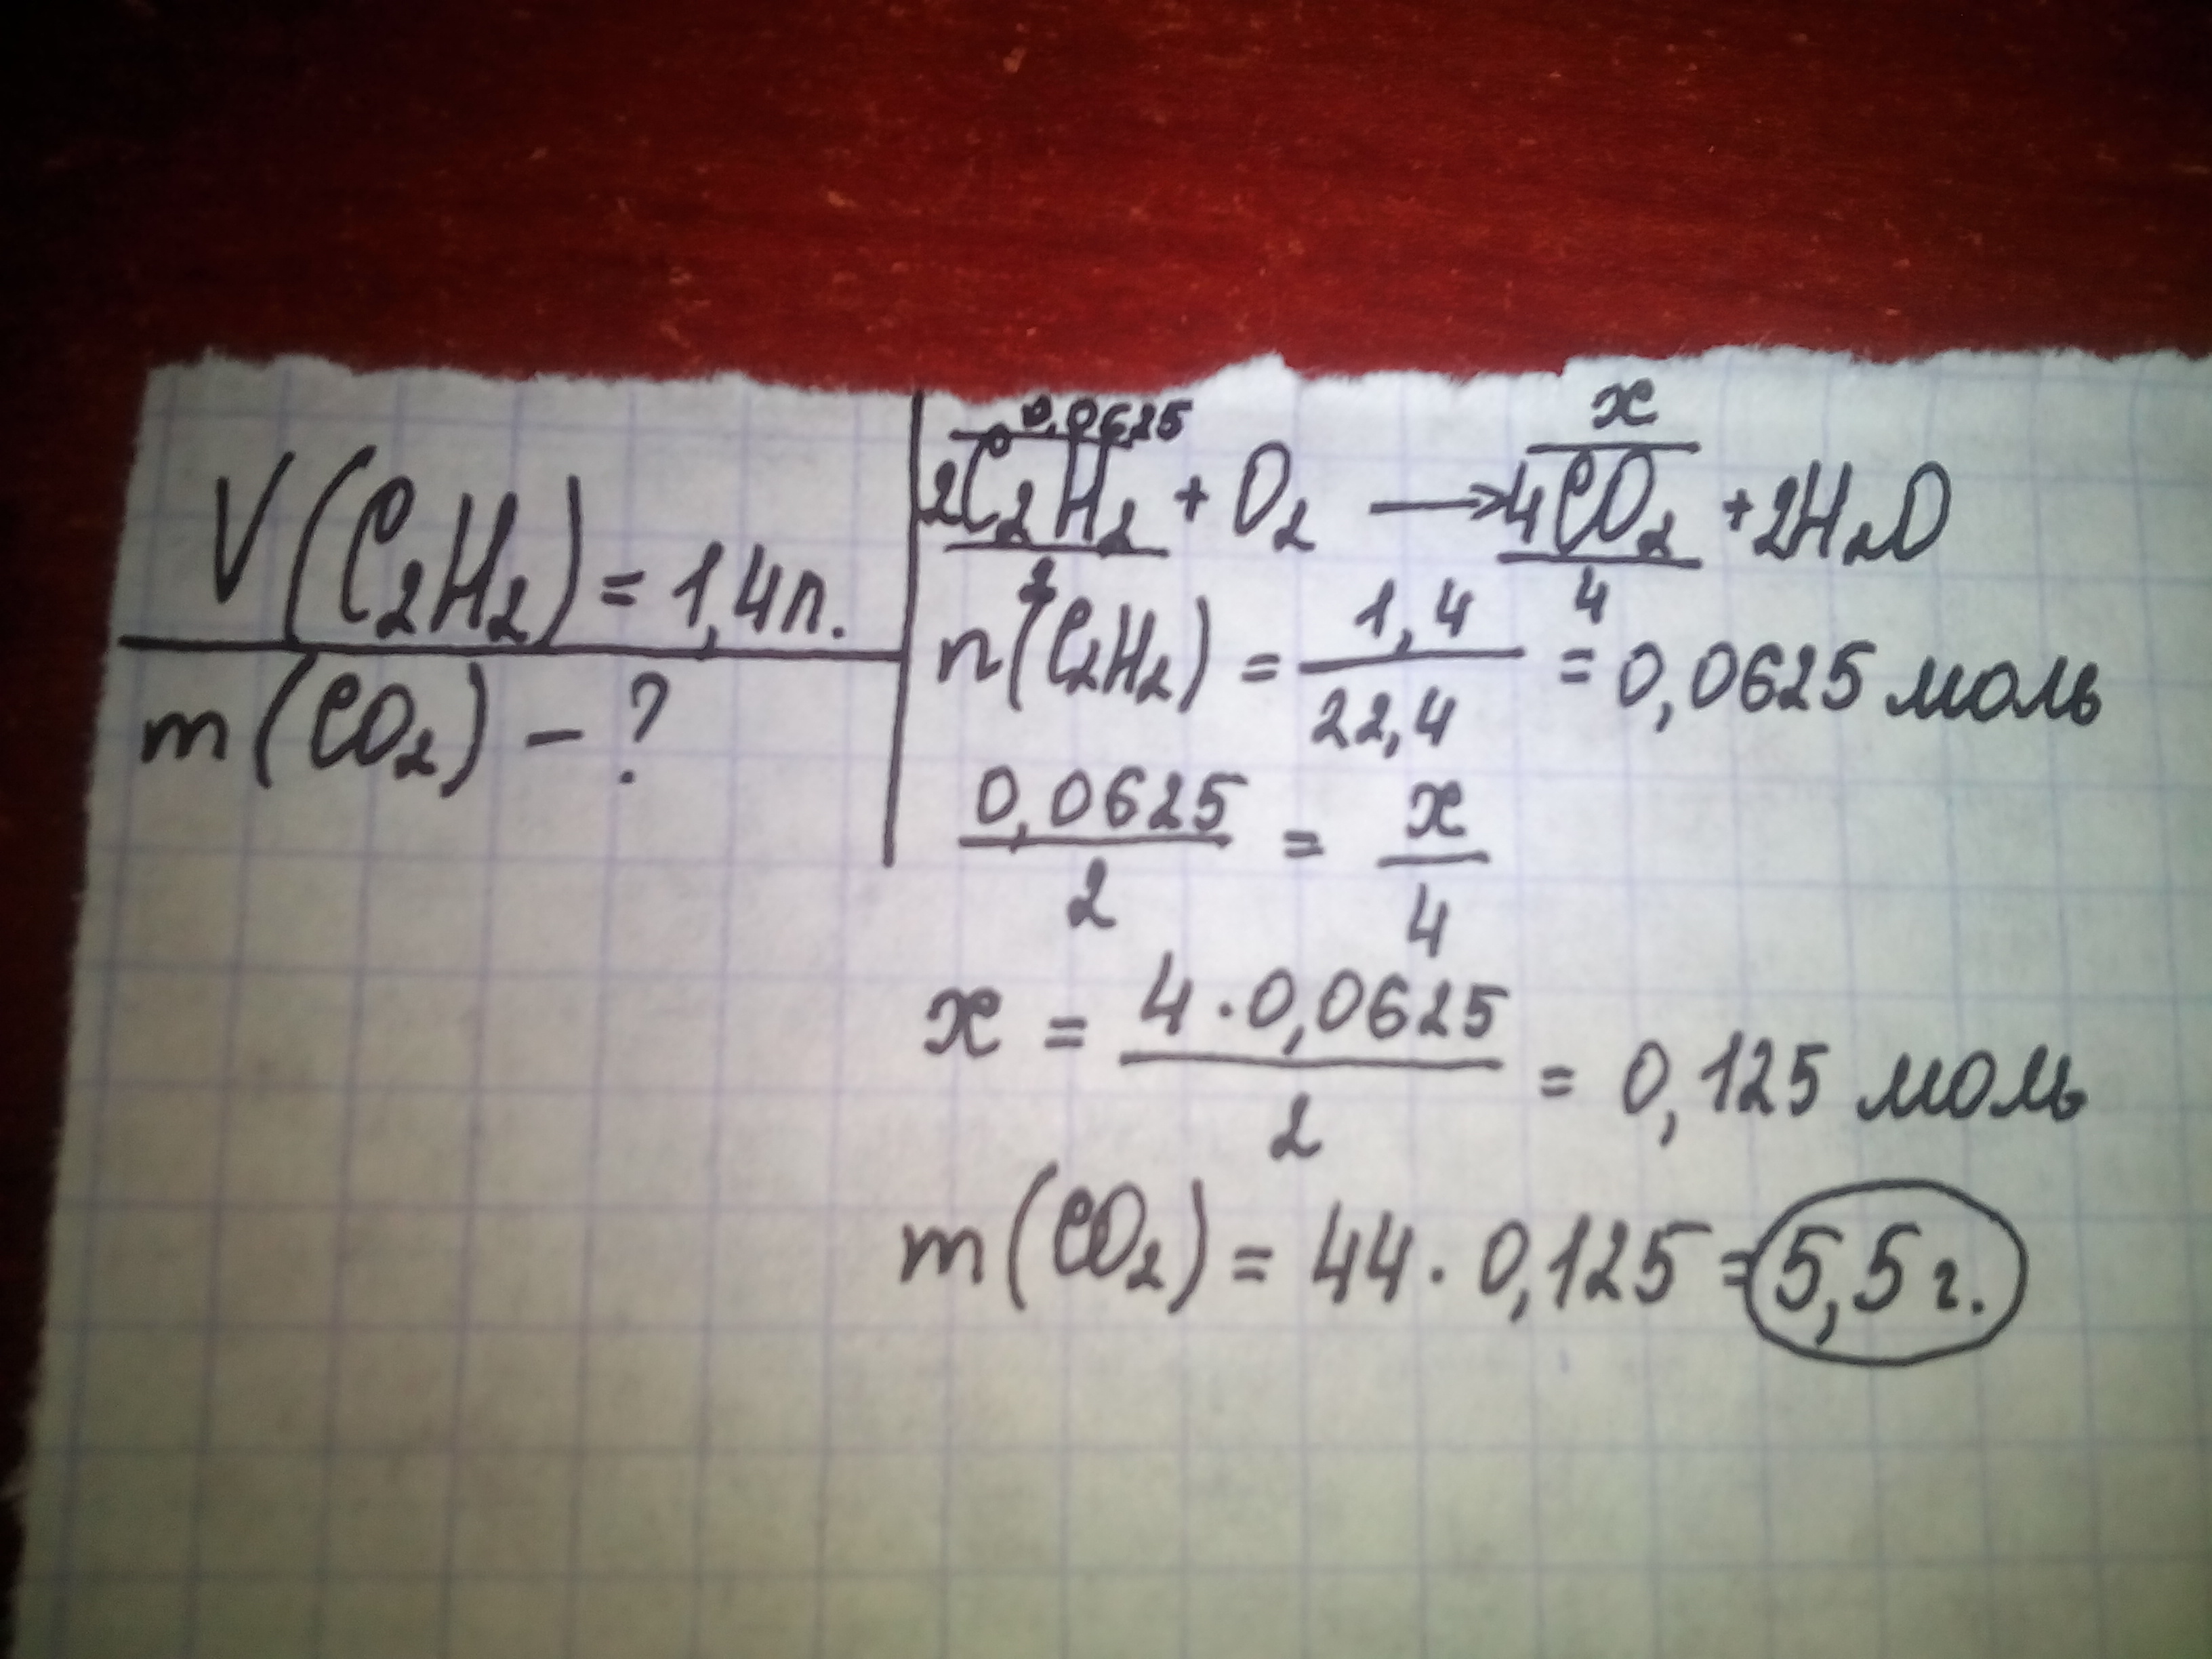 V(C₂H₂) = 1,4л.
m(CO₂) - ?
0,0625 x
2C₂H₂ + O₂ → 4CO₂ + 2H₂O
2 4
n(C₂H₂) = 1,4 / 22,4 = 0,0625 моль
0,0625 / 2 = x / 4
x = 4 · 0,0625 / 2 = 0,125 моль
m(CO₂) = 44 · 0,125 = 5,5 г.